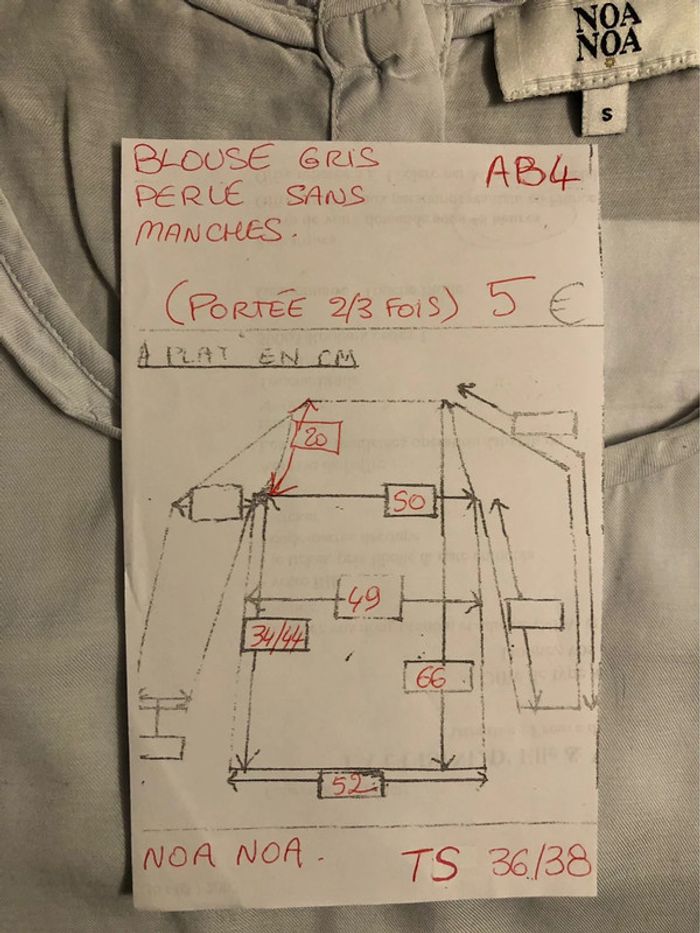 NOA
NOA
S
BLOUSE GRIS
PERLE SANS
MANCHES.
AB4
(PORTÉE 2/3 FOIS) 5 €
A PLAT EN CM
20
50
49
34/44
66
52
NOA NOA.
TS 36/38